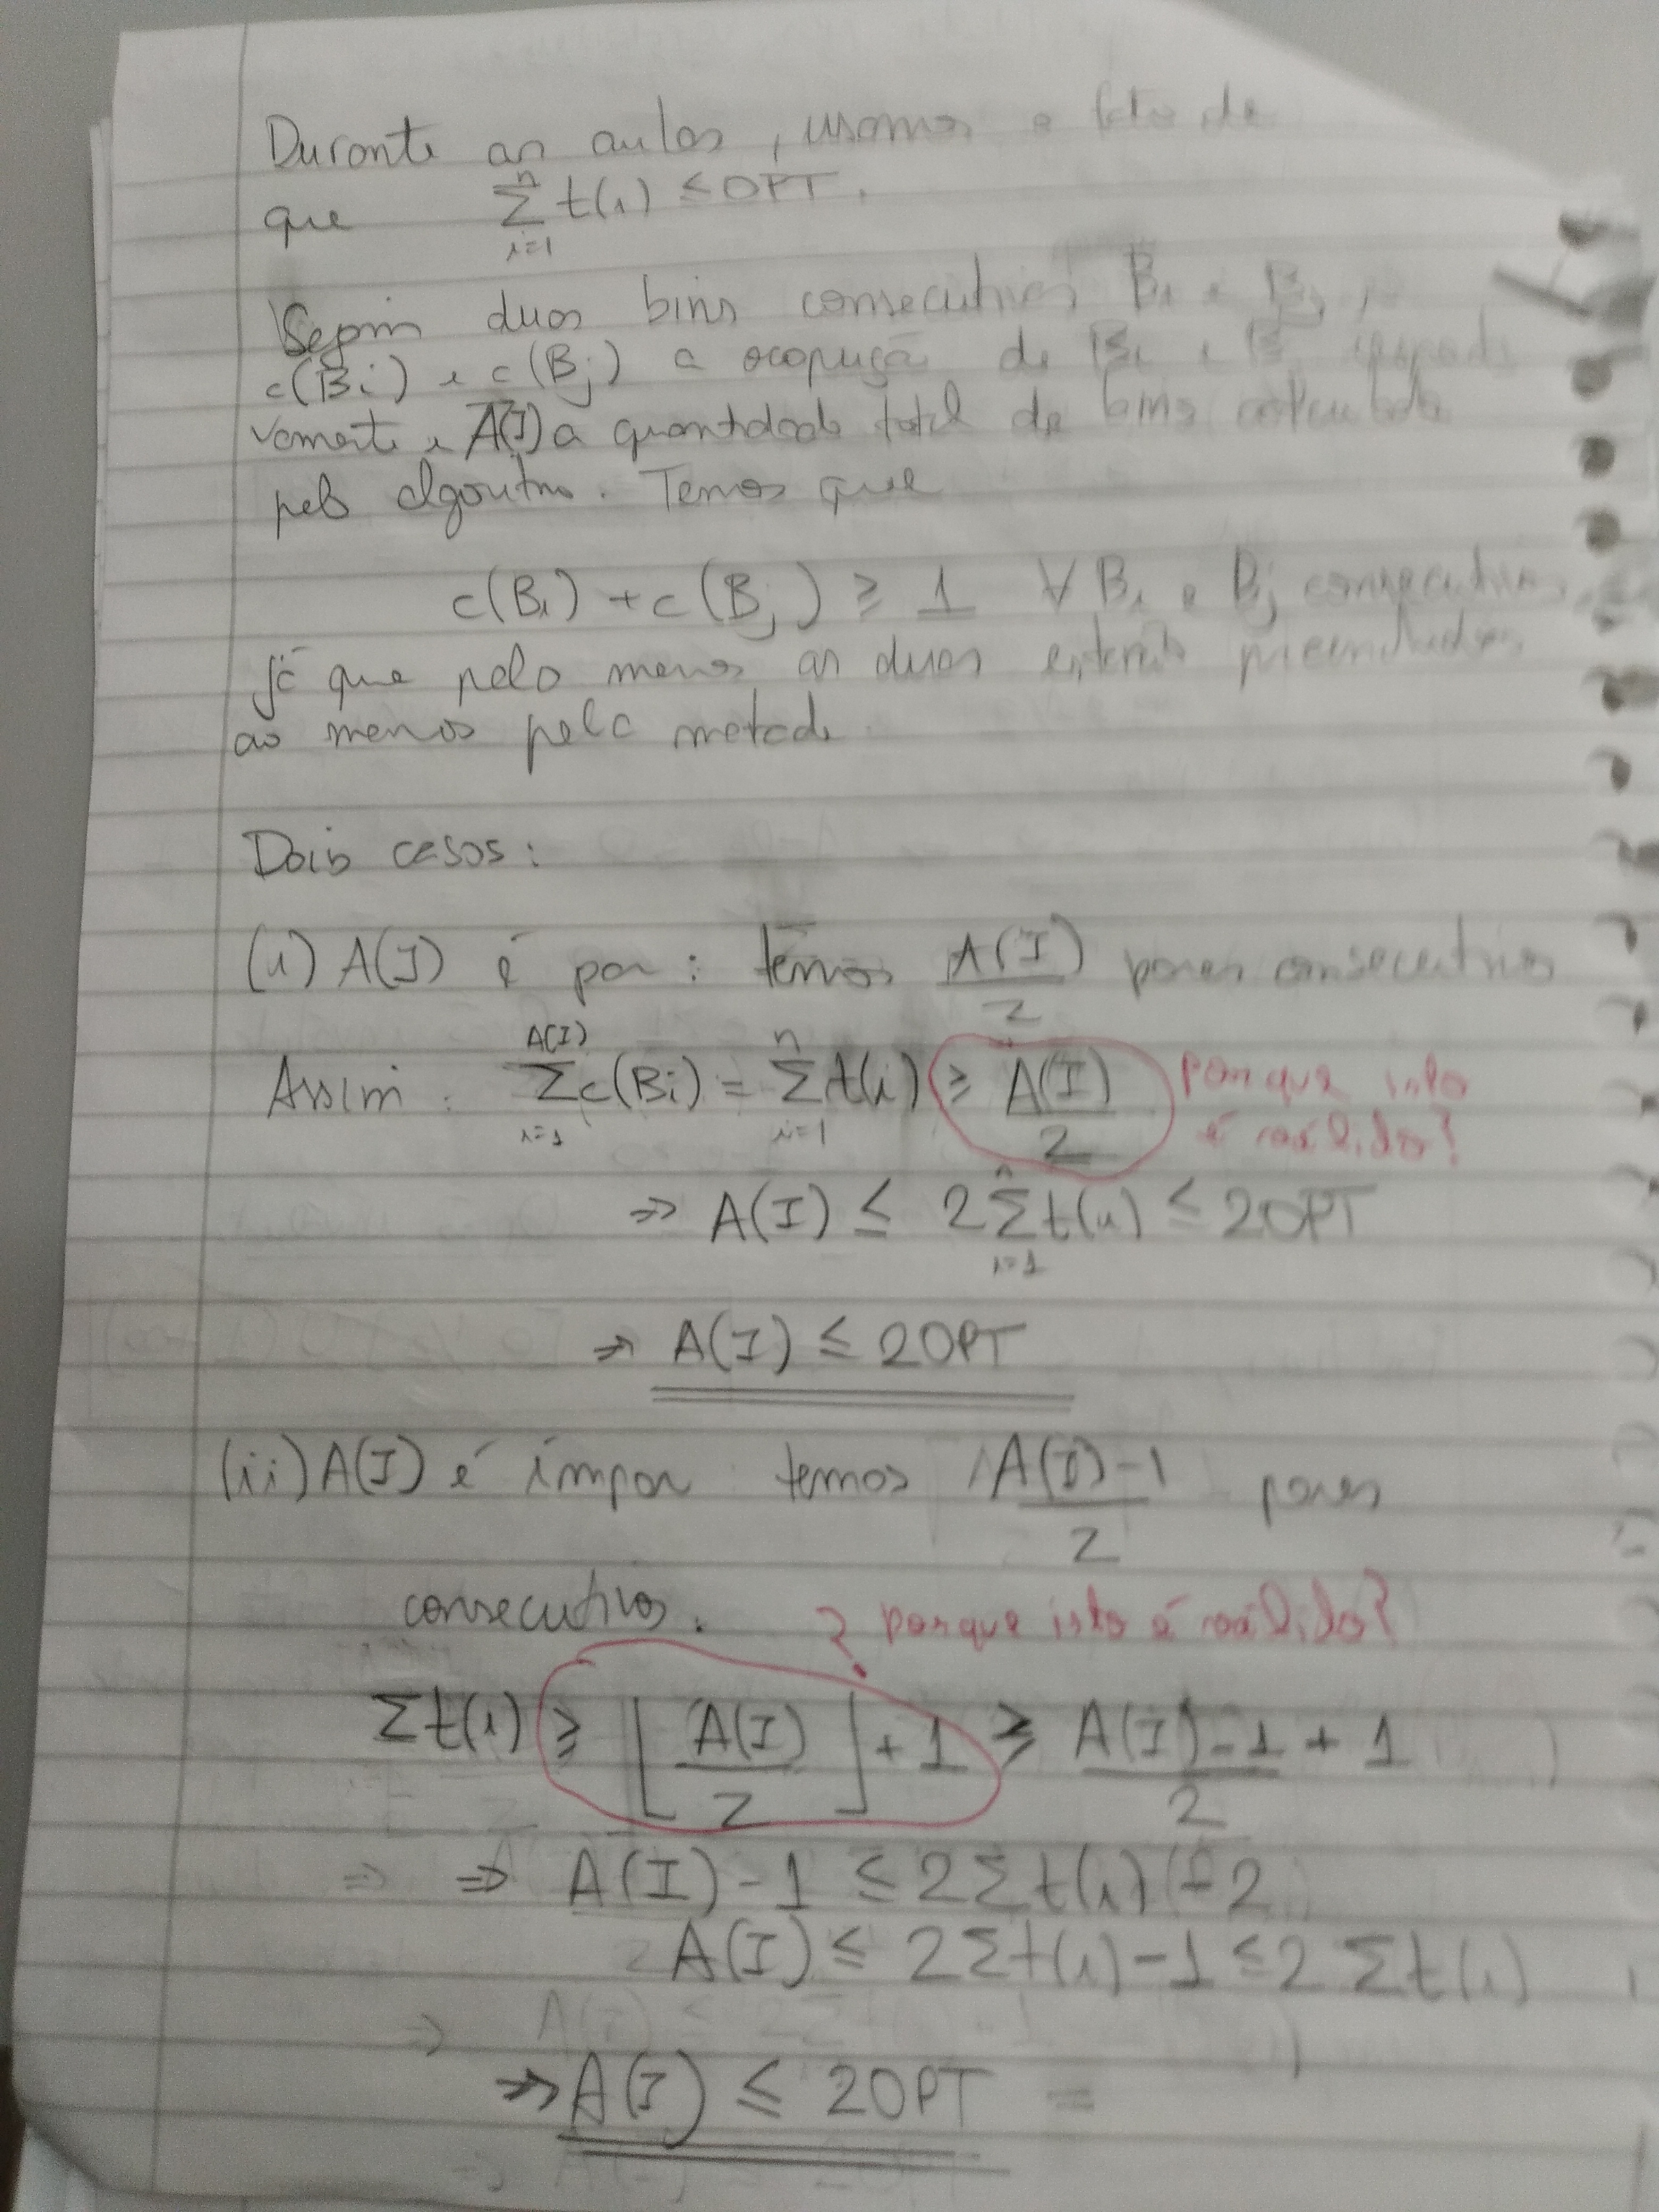 Durante as aulas, usamos o fato de
que \sum_{i=1}^{n} t(i) ≤ OPT.
Sejam duas bins consecutivas Bi e Bj,
c(Bi) e c(Bj) a ocopução de Bi e B
vamente e A(I) a quantidade total de bins
pelo algoritmo. Temos que
c(Bi) + c(Bj) ≥ 1 ∀ Bi e Bj consecutivas
já que pelo menos as duas estarão preenchidas
ao menos pela metade.
Dois casos:
(i) A(I) é par: temos \frac{A(I)}{2} pares consecutivos
Assim: \sum_{i=1}^{A(I)} c(Bi) = \sum_{i=1}^{n} t(i) ≥ \frac{A(I)}{2} porque isto
é válido?
⇒ A(I) ≤ 2 \sum_{i=1}^{n} t(i) ≤ 2OPT
⇒ A(I) ≤ 2OPT
(ii) A(I) é ímpar temos \frac{A(I)-1}{2} pares
consecutivos. ? porque isto é válido?
Σt(i) ≥ ⌊\frac{A(I)}{2}⌋ + 1 ≥ \frac{A(I)-1}{2} + 1
⇒ ⇒ A(I) - 1 ≤ 2Σt(i) - 2
A(I) ≤ 2Σt(i) - 1 ≤ 2Σt(i)
⇒ A(I) ≤ 2OPT =